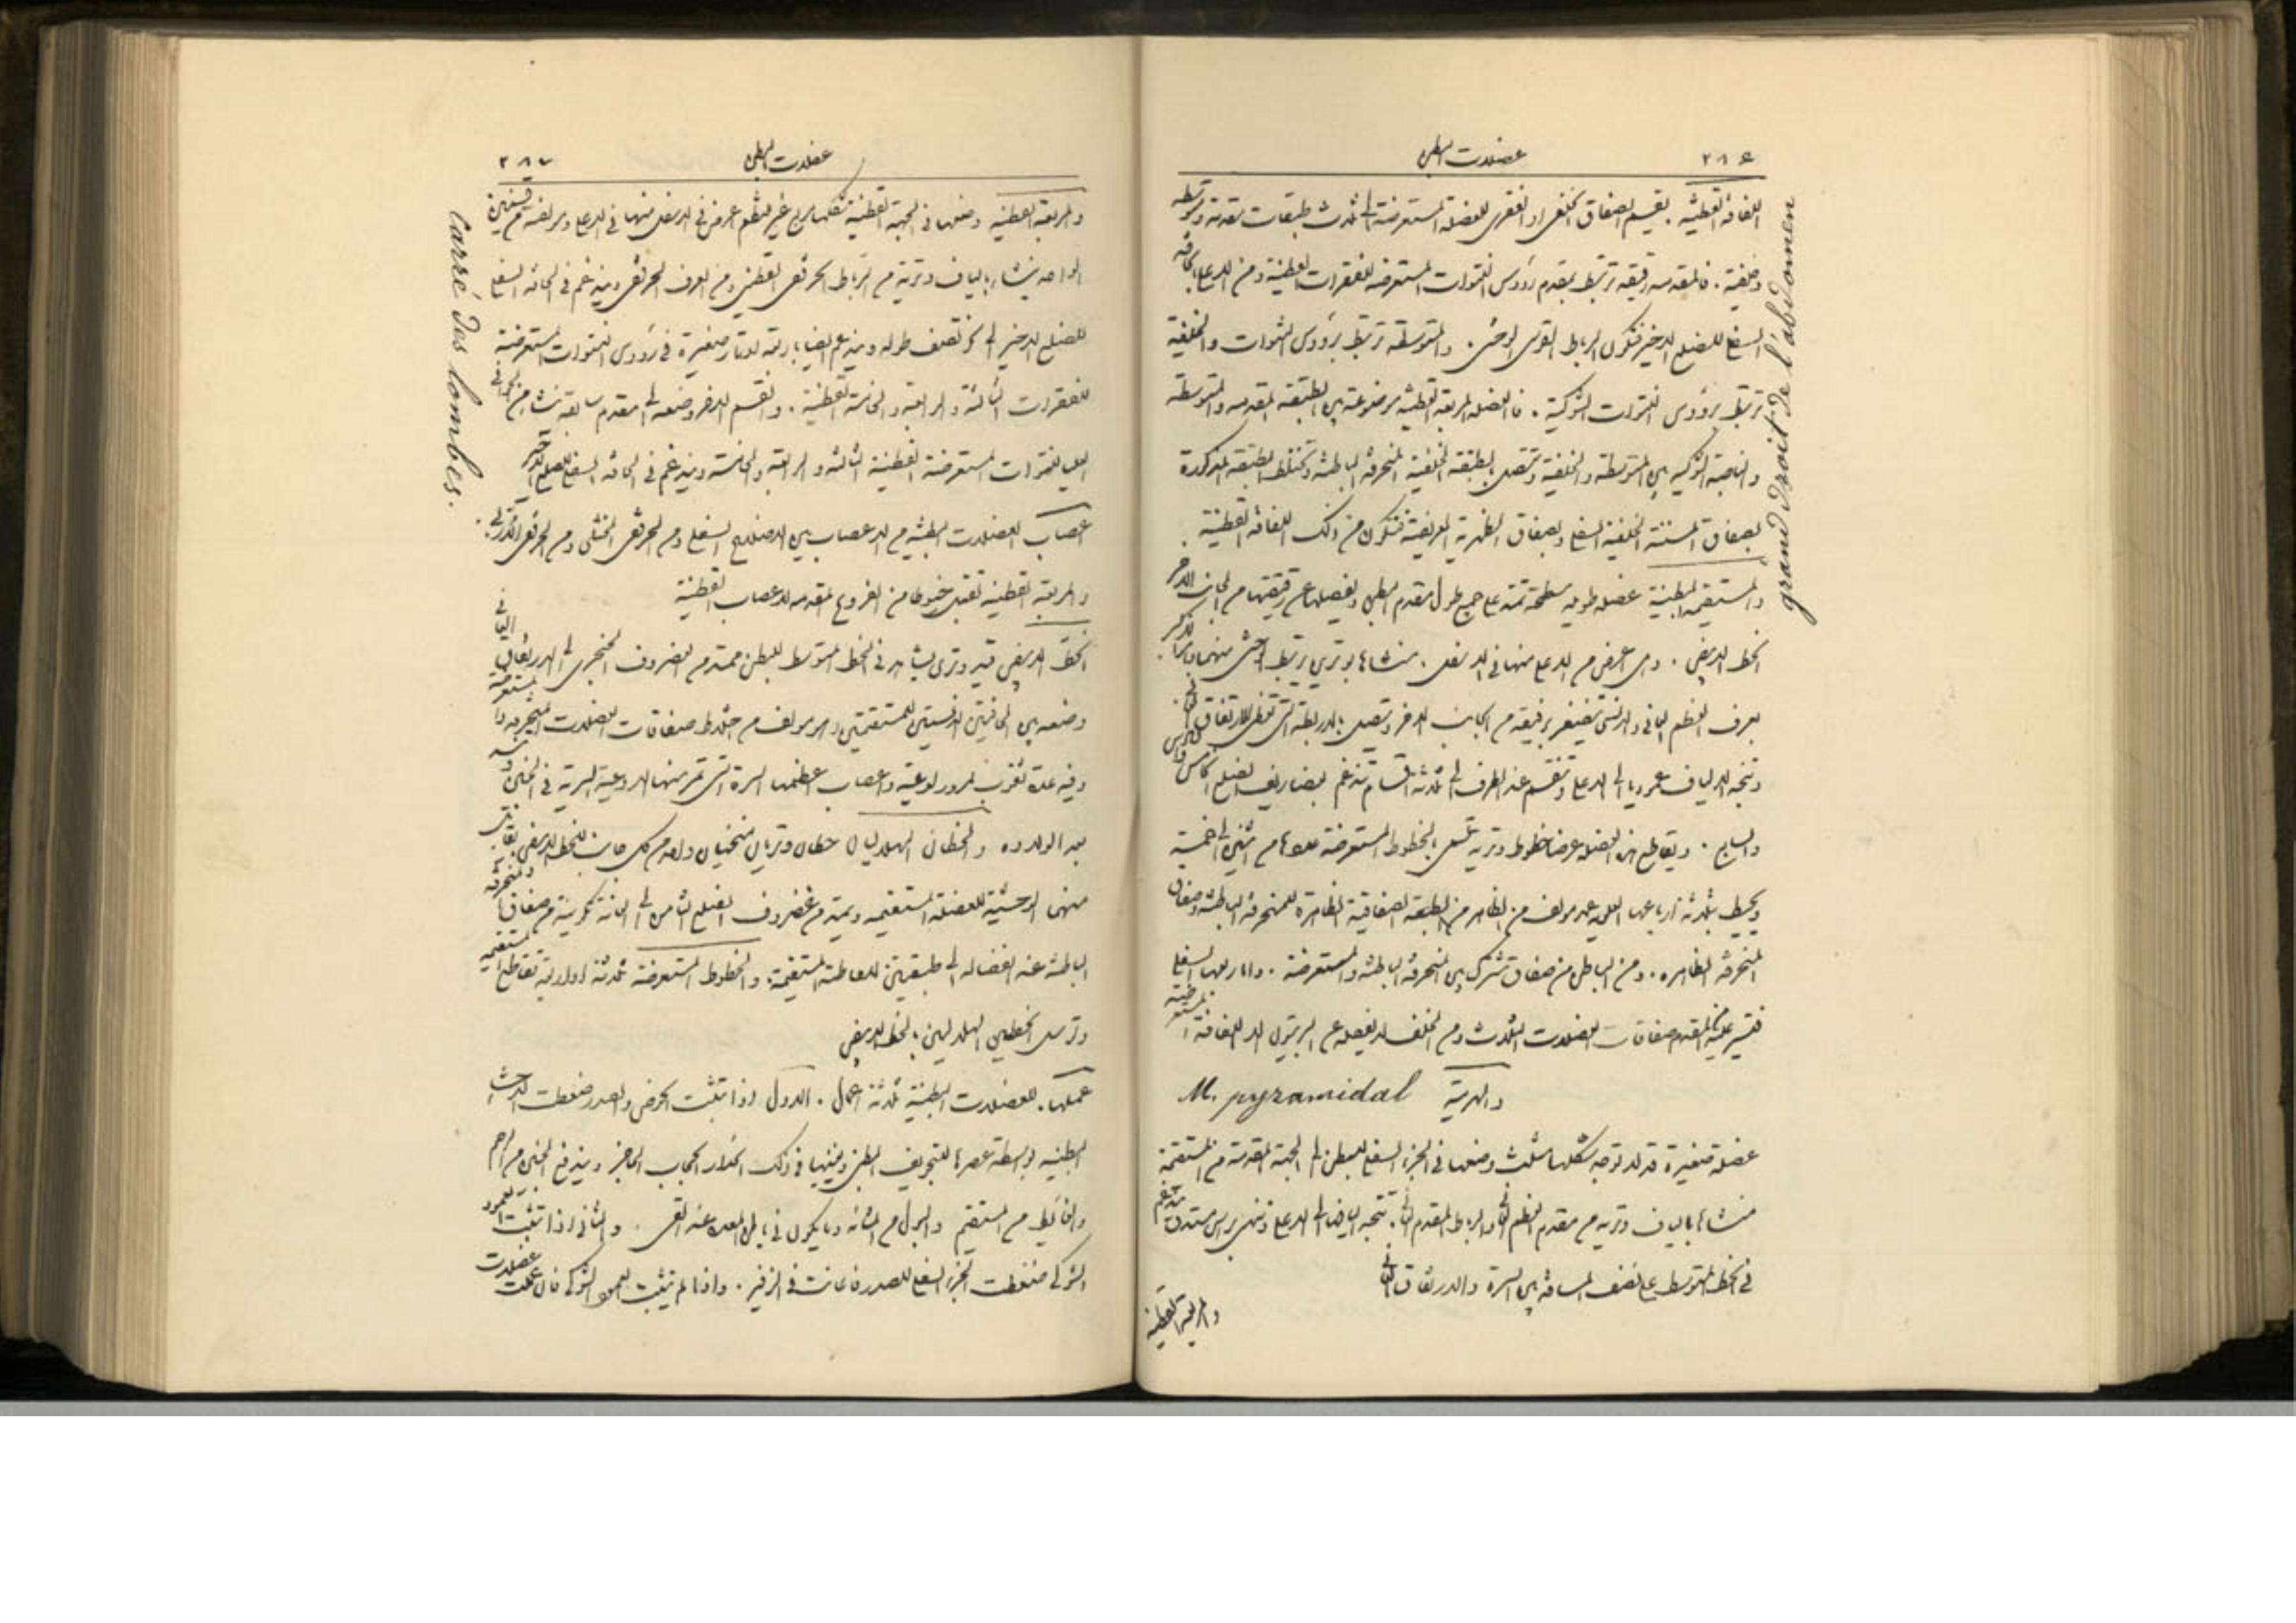 ٢٨٦ عضلات البطن
اللفافة القطنية. يقسم الصفاق الخلفي او الفقري للعضلة المستعرضة الى ثلاث طبقات مقدمة ومتوسطة
وخلفية. فالمقدمة رقيقة ترتبط بمقدم رؤوس النتوات المستعرضة للفقرات القطنية ومن الاعلى بحافة
السفلى للضلع الاخير فتكون الرباط القوسي الوحشي. والمتوسطة ترتبط برؤوس النتوات والخلفية
ترتبط برؤوس النتوات الشوكية. فالعضلة المربعة القطنية موضوعة بين الطبقة المقدمة والمتوسطة
والناصبة الشوكية بين المتوسطة والخلفية وتتصل بالطبقة الخلفية المنحرفة الباطنة وتختلط الطبقة المذكورة
بصفاق المسننة الخلفية السفلى وبصفاق الظهرية العريضة فتتكون من ذلك اللفافة القطنية.
والمستقيمة البطنية عضلة طويلة مسطحة تمتد على جميع طول مقدم البطن ويفصلها عن رفيقتها من الجانب الاخر
الخط الابيض. وهي اعرض من الاعلى منها في الاسفل. منشاها بوترين يرتبط الوحشي منهما وهو الاكبر
بعرف العظم العاني والانسي يتضفر برفيقه من الجانب الاخر ويتصل بالاربطة التي تغطي الارتفاق العاني
وتتجه الالياف عموديا الى الاعلى وتنقسم عند الطرف الى ثلاثة اقسام تندغم بغضاريف الضلع الخامس والسادس
والسابع. ويتقاطع هذه العضلة عرضا خطوط وترية تسمى بالخطوط المستعرضة عددها من اثنين الى خمسة
ويحيط بثلاثة ارباعها العليا غمد مولف من الظاهر من الطبقة الصفاقية الظاهرة للمنحرفة الباطنة وصفاق
المنحرفة الظاهرة. ومن الباطن من صفاق مشترك بين المنحرفة الباطنة والمستعرضة. واما ربعها السفلي
فتسير عليه من المقدم صفاقات العضلات الثلاث ومن الخلف لا يفصله عن البريتون الا اللفافة المستعرضة
والهرمية M. pyramidal
عضلة صغيرة قد لا توجد شكلها مثلث وضعها في الجزء السفلي للبطن الى الجهة المقدمة من المستقيمة
منشاها بالياف وترية من مقدم العظم العاني والرباط المقدم العاني. تتجه اليافها الى الاعلى وتنتهي براس مستدق تندغم
في الخط المتوسط على نصف المسافة بين السرة والارتفاق العاني
والمربعة القطنية
grand droit de l'abdomen
عضلات البطن ٢٨٧
والمربعة القطنية وضعها في الجهة القطنية شكلها مربع غير منتظم اعرض في الاسفل منها في الاعلى ومولفة من قسمين
الواحد ينشا بالياف وترية من الرباط الحرقفي القطني ومن العرف الحرقفي ويندغم في الحافة السفلى
للضلع الاخير الى نحو نصف طوله ويندغم ايضا باربعة اوتار صغيرة في رؤوس النتوات المستعرضة
للفقرات الثالثة والرابعة والخامسة القطنية. والقسم الاخر وضعه الى مقدم سابقه ينشا من الحوافي
العليا للنتوات المستعرضة القطنية الثالثة والرابعة والخامسة ويندغم في الحافة السفلى للضلع الاخير
اعصاب العضلات البطنية من الاعصاب بين الاضلاع السفلى ومن الحرقفي الخثلي ومن الحرقفي الاربي.
والمربعة القطنية تقبل خيوطا من الفروع المقدمة للاعصاب القطنية
الخط الابيض قيد وتري يشاهد في الخط المتوسط للبطن ممتد من الغضروف الخنجري الى الارتفاق العاني
وضعه بين الحافتين الانسيتين للمستقيمتين وهو مولف من اختلاط صفاقات العضلات المنحرفة والمستعرضة
وفيه عدة ثقوب لمرور اوعية واعصاب اعظمها السرة التي تمر منها الاوعية السرية في الجنين وتسد
بعد الولادة والخطان الهلاليان خطان وتريان منحنيان واحد من كل جانب للخط الابيض يقابل
منهما الوحشية للعضلة المستقيمة ويمتد من غضروف الضلع الثامن الى العانة تكوينه من صفاق المنحرفة
الباطنة عند انفصاله الى طبقتين لاحاطة المستقيمة. والخطوط المستعرضة ثلاثة او اربعة تقاطع المستقيمة
وتوصل الخطين الهلاليين بالخط الابيض
عملها. للعضلات البطنية ثلاثة اعمال. الاول اذا تثبت الحوض والصدر ضغطت الاحشاء
البطنية بواسطة عصرها للتجويف البطني ويعينها في ذلك انحدار الحجاب الحاجز ويندفع الجنين من الرحم
والغائط من المستقيم والبول من المثانة وما يكون في باطن المعدة عند القي. والثاني اذا تثبت العمود
الشوكي ضغطت الجزء السفلي للصدر فاعانت في الزفير. واذا لم يتثبت العمود الشوكي فان عملت عضلات
Carré des lombes.